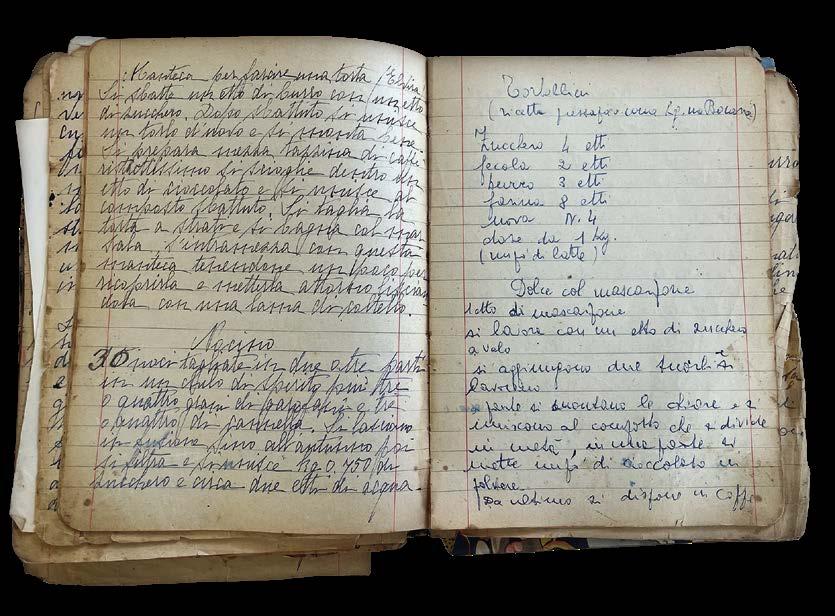 Manteca per farcire una torta (Elvira)
Si sbatte un etto di burro con un etto
di zucchero. Dopo sbattuto si unisce
un torlo d'uovo e si monta bene.
Si prepara mezza tazzina di caffè
ristrettissimo si scioglie dentro un
etto di cioccolato e si unisce al
composto sbattuto. Si taglia la
torta a strati e si bagna col mar
sala, s'intramezza con questa
manteca tenendone un poco per
ricoprirla e metterla attorno lisciam
dola con una lama di coltello.
Nocino
30 noci tagliate in due o tre parti
in un chilo di spirito puro tre
o quattro grani di garofani e tre
o quattro di cannella. Si lasciano
in fusione fino all'autunno poi
si filtra e si unisce Kg 0,750 di
zucchero e circa due etti di acqua.
Tortellini
(ricetta
Zucchero 4 etti
fecola 2 etti
burro 3 etti
farina 8 etti
uova N. 4
dose da 1 Kg.
(un pò di latte)
Dolce col mascarpone
1 etto di mascarpone
si lavora con un etto di zucchero
a velo
si aggiungono due tuorli si
lavorano
a parte si montano le chiare e si
uniscono al composto che si divide
in metà, in una parte si
mette un pò di cioccolato in
polvere.
Da ultimo si dispone in coppe